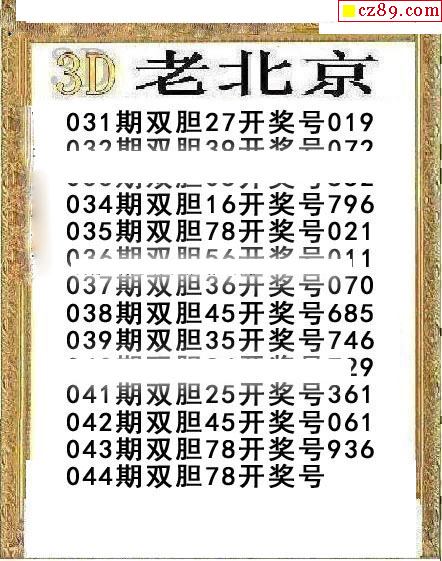 cz89.com
3D 老北京
031期双胆27开奖号019
032期双胆开奖号072
034期双胆16开奖号796
035期双胆78开奖号021
036期双胆56开奖号011
037期双胆36开奖号070
038期双胆45开奖号685
039期双胆35开奖号746
29
041期双胆25开奖号361
042期双胆45开奖号061
043期双胆78开奖号936
044期双胆78开奖号